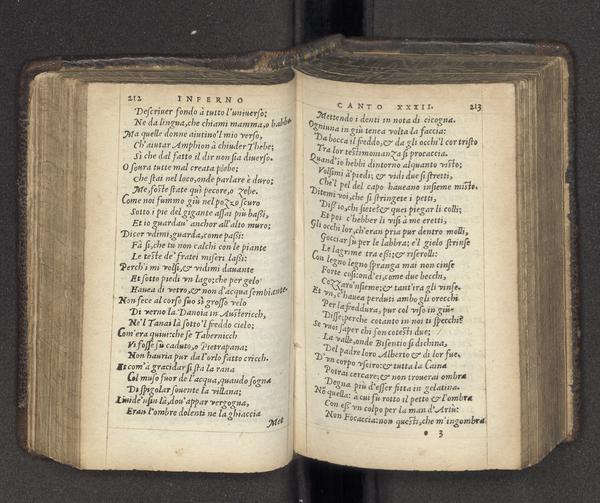 212 INFERNO
Descriuer fondo à tutto l'uniuerso;
Ne da lingua, che chiami mamma, o babbo.
Ma quelle donne aiutino'l mio verso,
Ch'aiutar Amphion à chiuder Thebe;
Sì che dal fatto il dir non sia diuerso.
O soura tutte mal creata plebe;
Che stai nel loco, onde parlare è duro;
Me, foste state quì pecore, o zebe.
Come noi fummo giù nel pozzo scuro
Sotto i pie del gigante assai piu bassi,
Et io guardau' anchor all'alto muro;
Dicer vdimi, guarda, come passi:
Fà sì, che tu non calchi con le piante
Le teste de' fratei miseri lassi:
Perch'i mi volsi, & vidimi dauante
Et sotto piedi vn lago; che per gelo
Hauea di vetro, & non d'acqua sembiante.
Non fece al corso suo sì grosso velo
Di verno la Danoia in Austericch,
Ne'l Tanai là sotto'l freddo cielo;
Com'era quiui: che se Tabernicch
Vi fosse sù caduto, o Pietrapana;
Non hauria pur da l'orlo fatto cricch.
Et com'a gracidar si sta la rana
Col muso fuor de l'acqua, quando sogna
Di spigolar souente la villana;
Liuide'nsin là, dou'appar vergogna,
Eran l'ombre dolenti ne la ghiaccia
Met
CANTO XXXII. 213
Mettendo i denti in nota di cicogna.
Ogniuna in giù tenea volta la faccia:
Da bocca il freddo, & da gli occhi'l cor tristo
Tra lor testimonianza si procaccia.
Quand'io hebbi dintorno alquanto visto;
Volsimi à piedi; & vidi due sì stretti,
Che'l pel del capo haueano insieme misto.
Ditemi voi, che sì stringete i petti,
Diss'io, chi siete? & quei piegar li colli;
Et poi c'hebber li visi à me eretti,
Gli occhi lor, ch'eran pria pur dentro molli,
Gocciar sù per le labbra; e'l gielo strinse
Le lagrime tra essi; & riserolli:
Con legno legno spranga mai non cinse
Forte così: ond'ei, come due becchi,
Cozzaro'nsieme; & tant'ira gli vinse.
Et vn, c'hauea perduti ambo gli orecchi
Per la freddura, pur col viso in giùe
Disse; perche cotanto in noi ti specchi?
Se vuoi saper chi son cotesti due;
La valle, onde Bisentio si dichina,
Del padre loro Alberto & di lor fue.
D'vn corpo vsciro: & tutta la Caina
Potrai cercare; & non trouerai ombra
Degna più d'esser fitta in gelatina.
Nò quella: a cui fu rotto il petto & l'ombra
Con esso vn colpo per la man d'Artù:
Non Focaccia: non questi, che m'ingombra
3